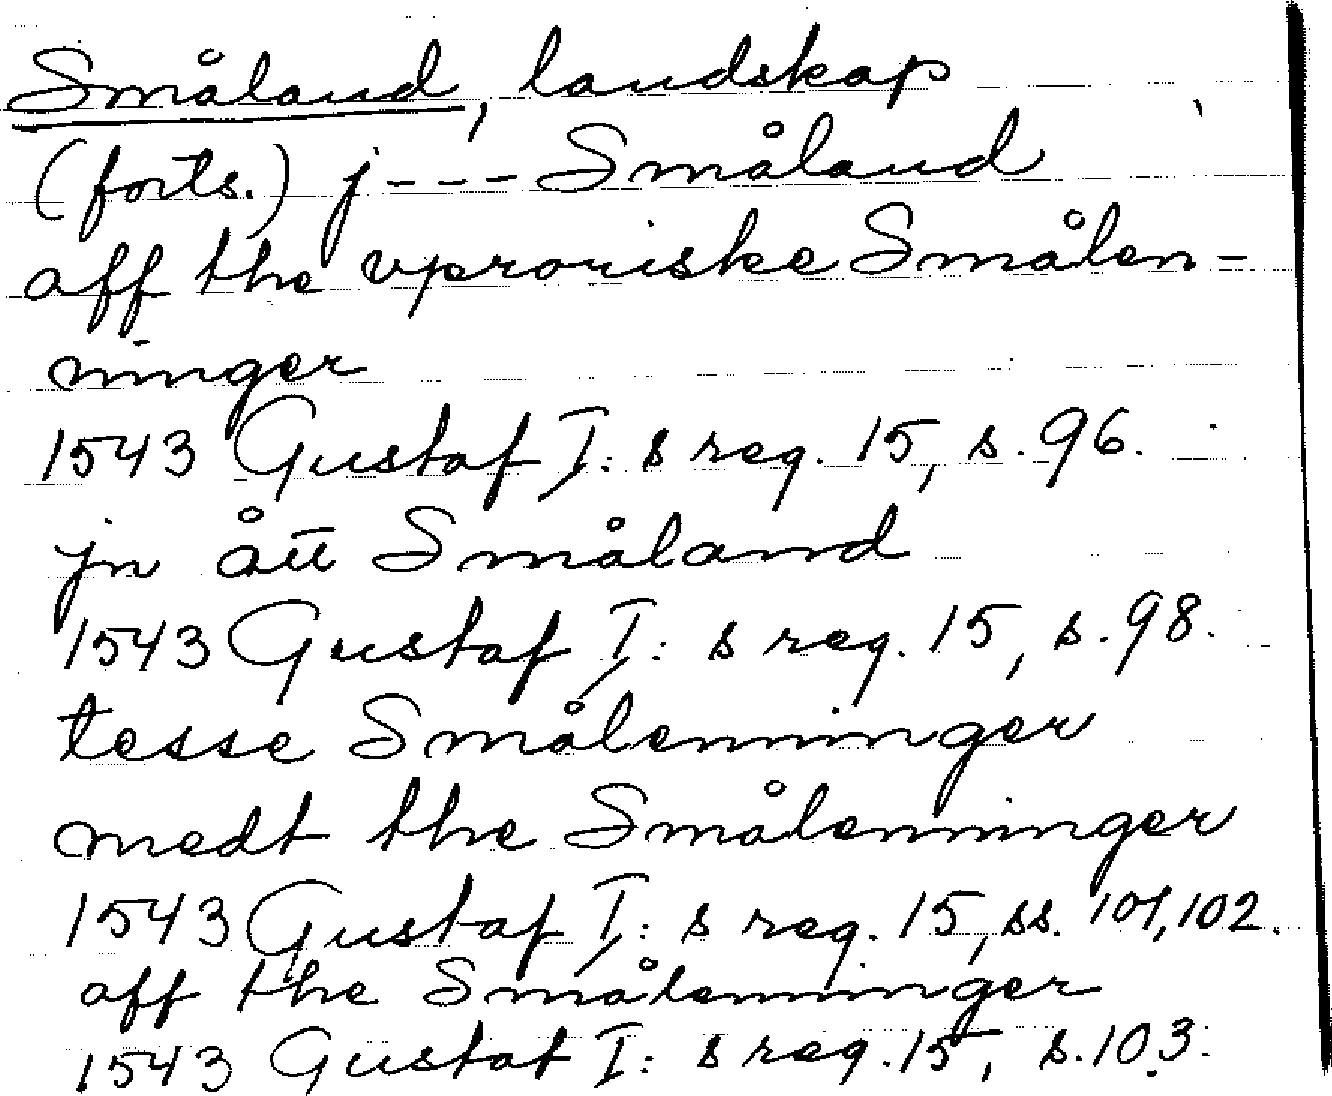 Småland, landskap
(forts.) j - - - Småland
aff the vproriske Smålen-
ninger
1543 Gustaf I: s reg. 15, s. 96.
jn ått Småland
1543 Gustaf I: s reg. 15, s. 98.
tesse Smålenninger
medt the Smålenninger
1543 Gustaf I: s reg. 15, ss. 101, 102.
aff the Smålenninger
1543 Gustaf I: s reg. 15, s. 103.